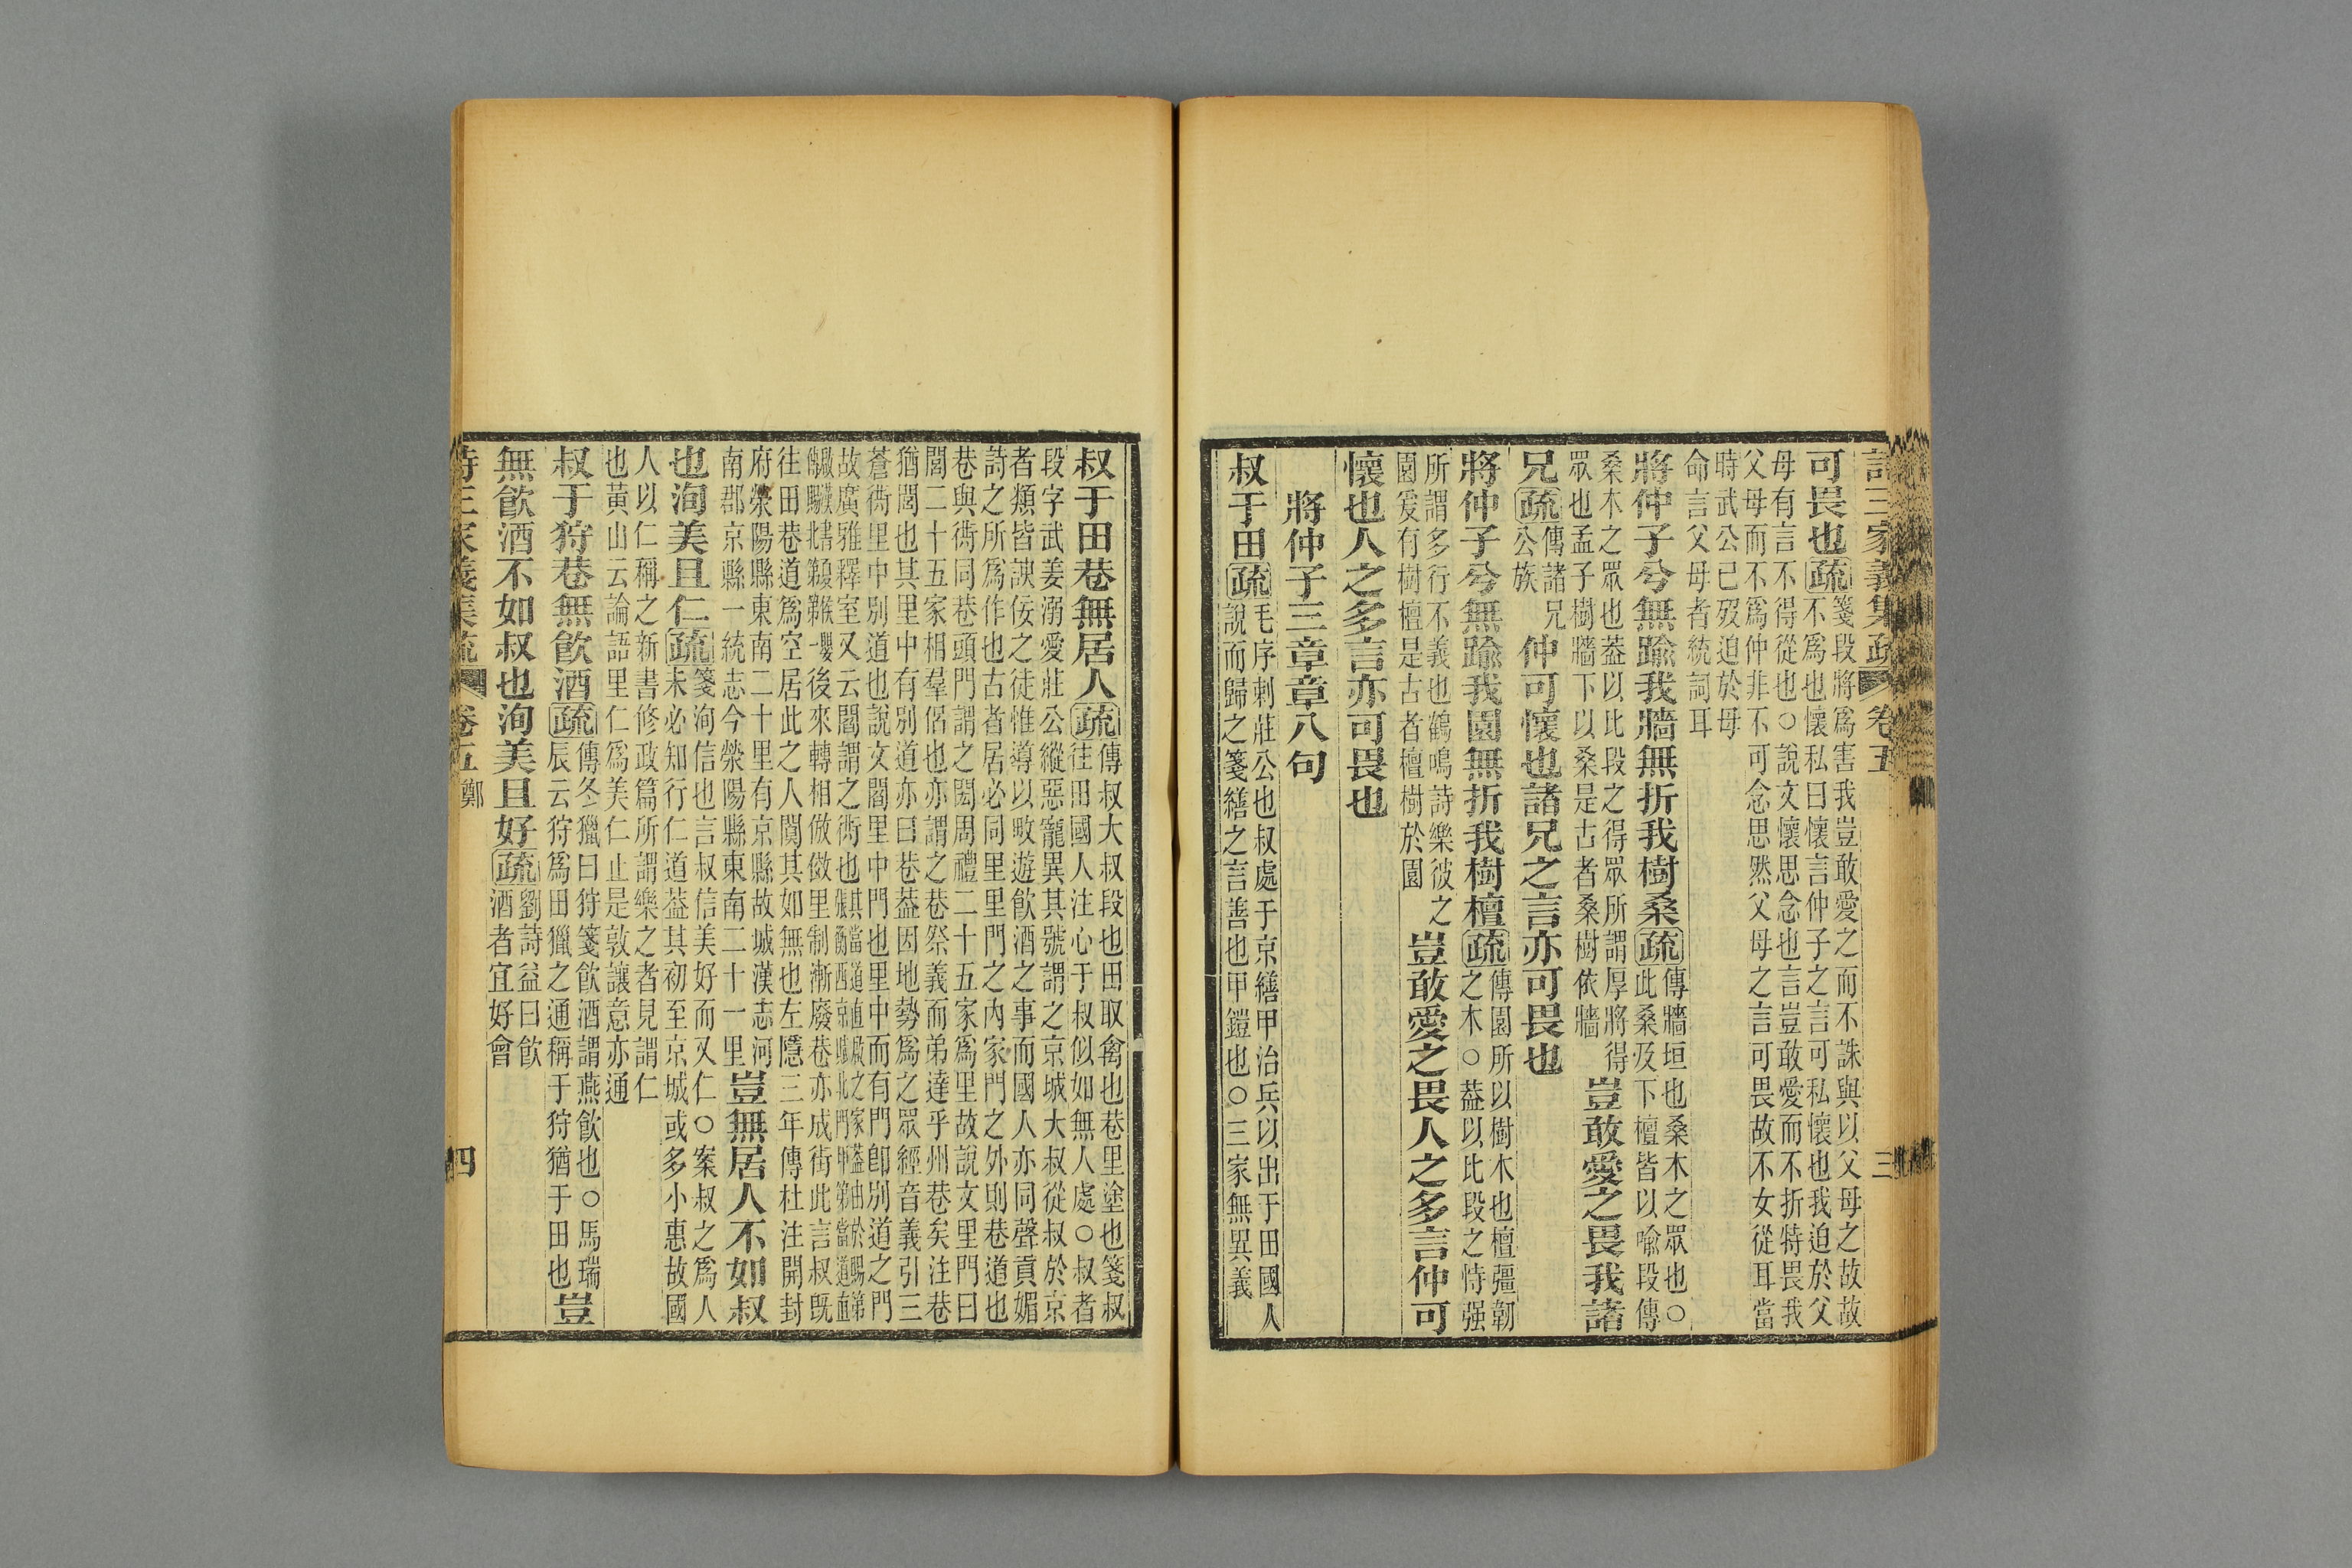 詩三家義集疏 卷五 三
可畏也疏箋段將爲害我豈敢愛之而不誅與以父母之故故
不爲也懷私曰懷言仲子之言可私懷也我迫於父
母有言不得從也○說文懷思念也言豈敢愛而不折特畏我
父母而不爲仲非不可念思然父母之言可畏故不女從耳當
時武公已歿迫於母
命言父母者統詞耳
將仲子兮無踰我牆無折我樹桑疏傳牆垣也桑木之眾也○
此桑及下檀皆以喻段傳
桑木之眾也蓋以比段之得眾所謂厚將得
眾也孟子樹牆下以桑是古者桑樹依牆
豈敢愛之畏我諸
兄疏傳諸兄
公族
仲可懷也諸兄之言亦可畏也
將仲子兮無踰我園無折我樹檀疏傳園所以樹木也檀彊韌
之木○蓋以比段之恃强
所謂多行不義也鶴鳴詩樂彼之
園爰有樹檀是古者檀樹於園
豈敢愛之畏人之多言仲可
懷也人之多言亦可畏也
將仲子三章章八句
叔于田疏毛序刺莊公也叔處于京繕甲治兵以出于田國人
說而歸之箋繕之言善也甲鎧也○三家無異義
叔于田巷無居人疏傳叔大叔段也田取禽也巷里塗也箋叔
往田國人注心于叔似如無人處○叔者
段字武姜溺愛莊公縱惡寵異其號謂之京城大叔從叔於京
者類皆諛佞之徒惟導以畋遊飲酒之事而國人亦同聲貢媚
詩之所爲作也古者居必同里里門之內家門之外則巷道也
巷與衖同巷頭門謂之閎周禮二十五家爲里故說文里門曰
閭二十五家相羣侶也亦謂之巷祭義而弟達乎州巷矣注巷
猶閭也其里中有別道亦曰巷蓋因地勢爲之眾經音義引三
蒼衖里中別道也說文閻里中門也里中而有門卽別道之門
故廣雅釋室又云閻謂之衖也
後來轉相倣傚里制漸廢巷亦成街此言叔旣
往田巷道爲空居此之人闃其如無也左隱三年傳杜注開封
府滎陽縣東南二十里有京縣故城漢志河
南郡京縣一統志今滎陽縣東南二十一里
豈無居人不如叔
也洵美且仁疏箋洵信也言叔信美好而又仁○案叔之爲人
未必知行仁道蓋其初至京城或多小惠故國
人以仁稱之新書修政篇所謂樂之者見謂仁
也黃山云論語里仁爲美仁止是敦讓意亦通
叔于狩巷無飮酒疏傳冬獵曰狩箋飮酒謂燕飮也○馬瑞
辰云狩爲田獵之通稱于狩猶于田也
豈
無飮酒不如叔也洵美且好疏劉詩益曰飮
酒者宜好會
詩三家義集疏 卷五 鄭 四